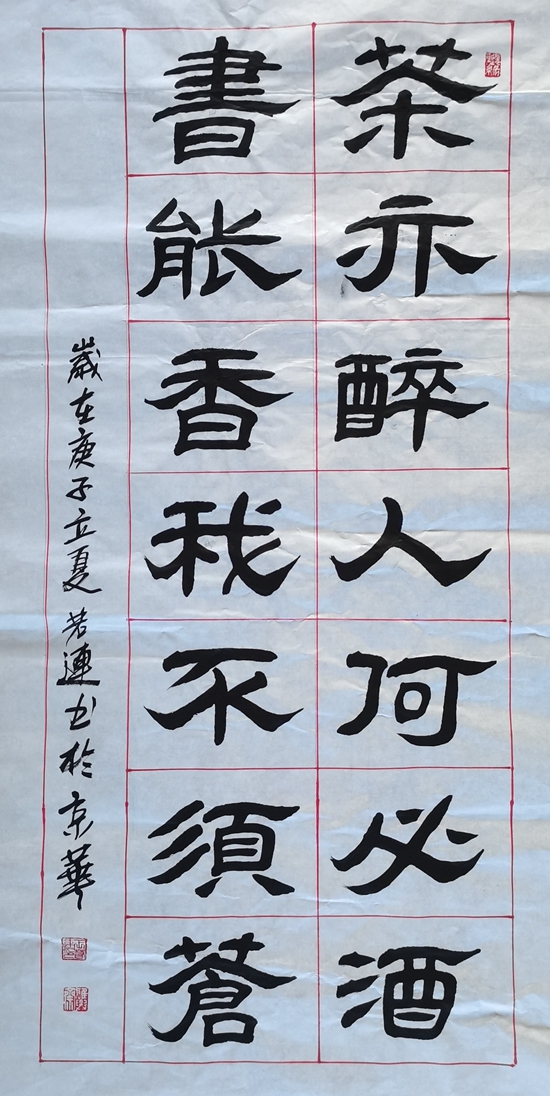 茶亦醉人何必酒
書能香我不須蒼
歲在庚子立夏若連书於京華